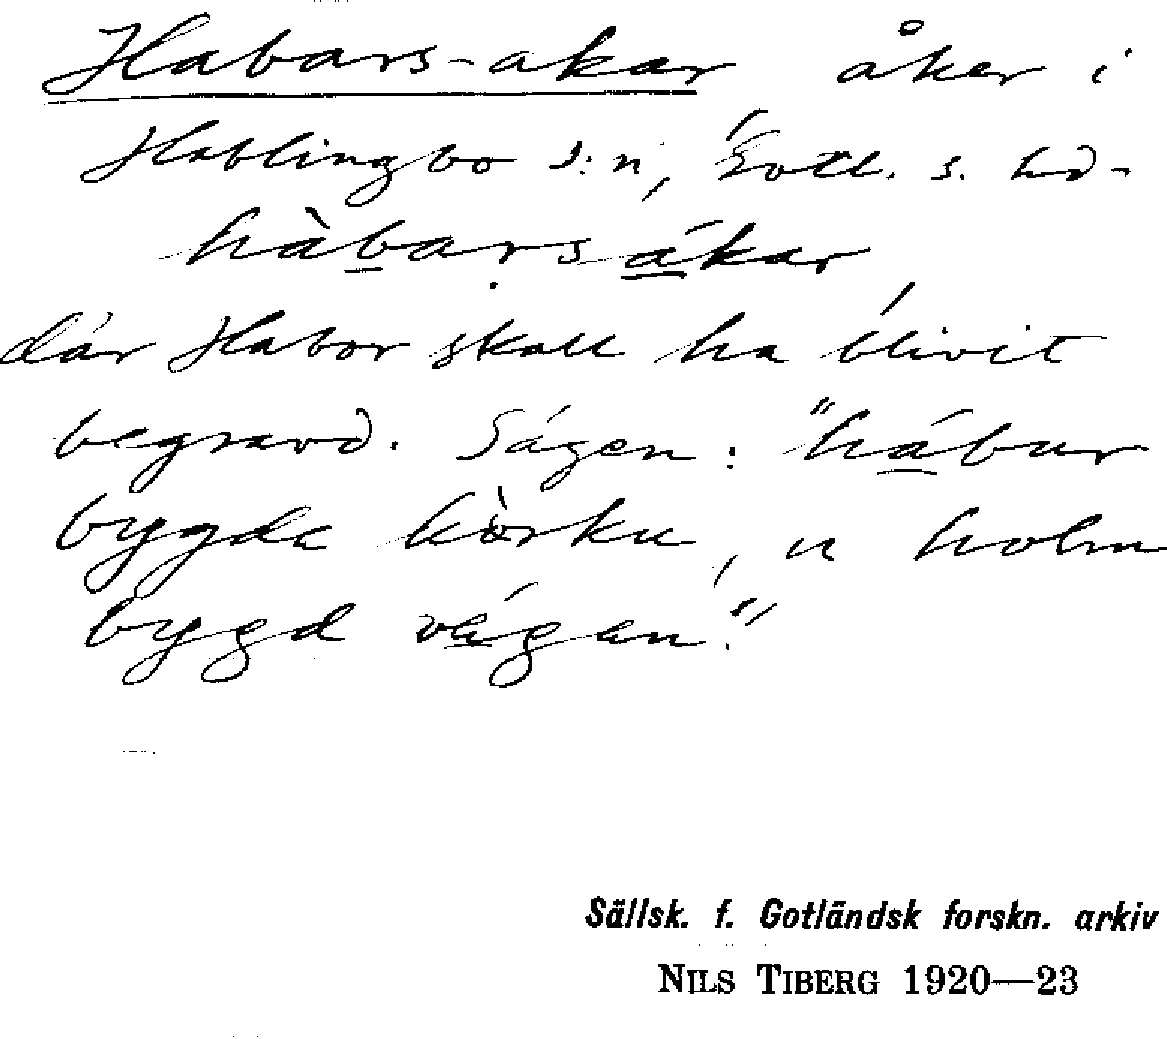 Habars-akar åker i
Hablingbo s:n, Gotl. s. hd.
hàbarsákar
där Habor skall ha blivit
begravd. Sägen: "hábur
bygde körku, u holm
bygd vägen."
Sällsk. f. Gotländsk forskn. arkiv
NILS TIBERG 1920—23